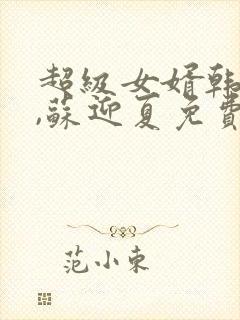 超級女婿韩
,蘇迎夏免費
范小東